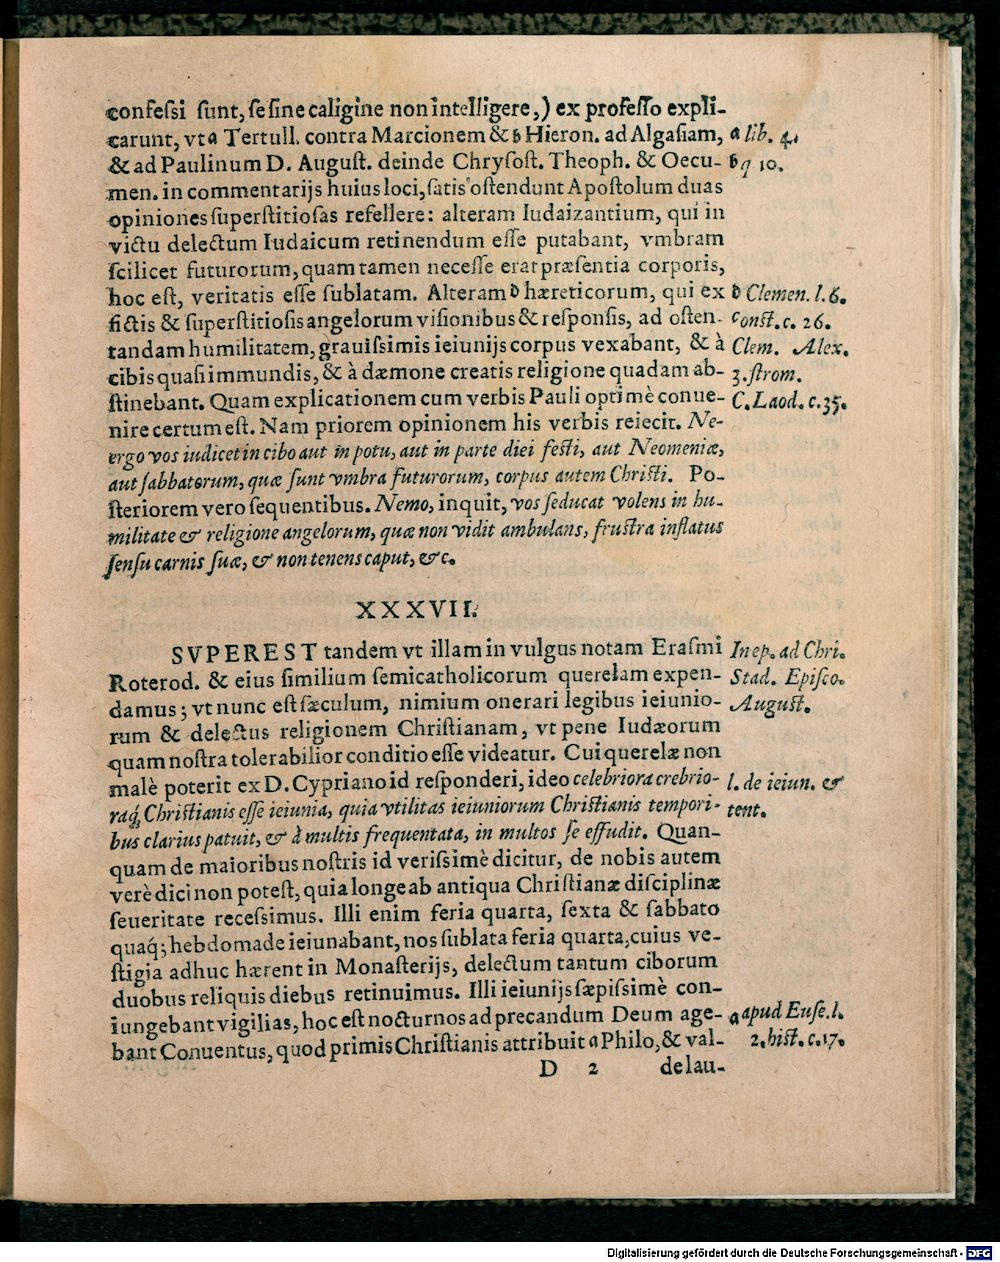 confeſsi ſunt, ſe ſine caligine non intelligere,) ex profeſſo expli-
carunt, vt a Tertull. contra Marcionem & b Hieron. ad Algaſiam,
a lib. 4.
& ad Paulinum D. Auguſt. deinde Chryſoſt. Theoph. & Oecu-
b q 10.
men. in commentarijs huius loci, ſatis oſtendunt Apoſtolum duas
opiniones ſuperſtitioſas refellere: alteram Iudaizantium, qui in
victu delectum Iudaicum retinendum eſſe putabant, vmbram
ſcilicet futurorum, quam tamen neceſſe erat præſentia corporis,
hoc eſt, veritatis eſſe ſublatam. Alteram b hæreticorum, qui ex
b Clemen. l. 6.
fictis & ſuperſtitioſis angelorum viſionibus & reſponſis, ad oſten-
conſt. c. 26.
tandam humilitatem, grauiſsimis ieiunijs corpus vexabant, & à
Clem. Alex.
cibis quaſi immundis, & à dæmone creatis religione quadam ab-
3. ſtrom.
ſtinebant. Quam explicationem cum verbis Pauli optimè conue-
C. Laod. c. 35.
nire certum eſt. Nam priorem opinionem his verbis reiecit. Ne-
ergo vos iudicet in cibo aut in potu, aut in parte diei feſti, aut Neomeniæ,
aut ſabbatorum, quæ ſunt vmbra futurorum, corpus autem Chriſti. Po-
ſteriorem vero ſequentibus. Nemo, inquit, vos ſeducat volens in hu-
militate & religione angelorum, quæ non vidit ambulans, fruſtra inflatus
ſenſu carnis ſuæ, & non tenens caput, &c.
XXXVII.
SVPEREST tandem vt illam in vulgus notam Eraſmi
In ep. ad Chri.
Roterod. & eius ſimilium ſemicatholicorum querelam expen-
Stad. Epiſco.
damus; vt nunc eſt ſæculum, nimium onerari legibus ieiunio-
Auguſt.
rum & delectus religionem Chriſtianam, vt pene Iudæorum
quam noſtra tolerabilior conditio eſſe videatur. Cui querelæ non
malè poterit ex D. Cypriano id reſponderi, ideo celebriora crebrio-
l. de ieiun. &
raq́; Chriſtianis eſſe ieiunia, quia vtilitas ieiuniorum Chriſtianis tempori-
tent.
bus clarius patuit, & à multis frequentata, in multos ſe effudit. Quan-
quam de maioribus noſtris id veriſsimè dicitur, de nobis autem
verè dici non poteſt, quia longe ab antiqua Chriſtianæ diſciplinæ
ſeueritate receſsimus. Illi enim feria quarta, ſexta & ſabbato
quaq́; hebdomade ieiunabant, nos ſublata feria quarta, cuius ve-
ſtigia adhuc hærent in Monaſterijs, delectum tantum ciborum
duobus reliquis diebus retinuimus. Illi ieiunijs ſæpiſsimè con-
iungebant vigilias, hoc eſt nocturnos ad precandum Deum age-
a apud Euſe. l.
bant Conuentus, quod primis Chriſtianis attribuit a Philo, & val-
2. hiſt. c. 17.
D 2 de lau-
Digitalisierung gefördert durch die Deutsche Forschungsgemeinschaft - DFG